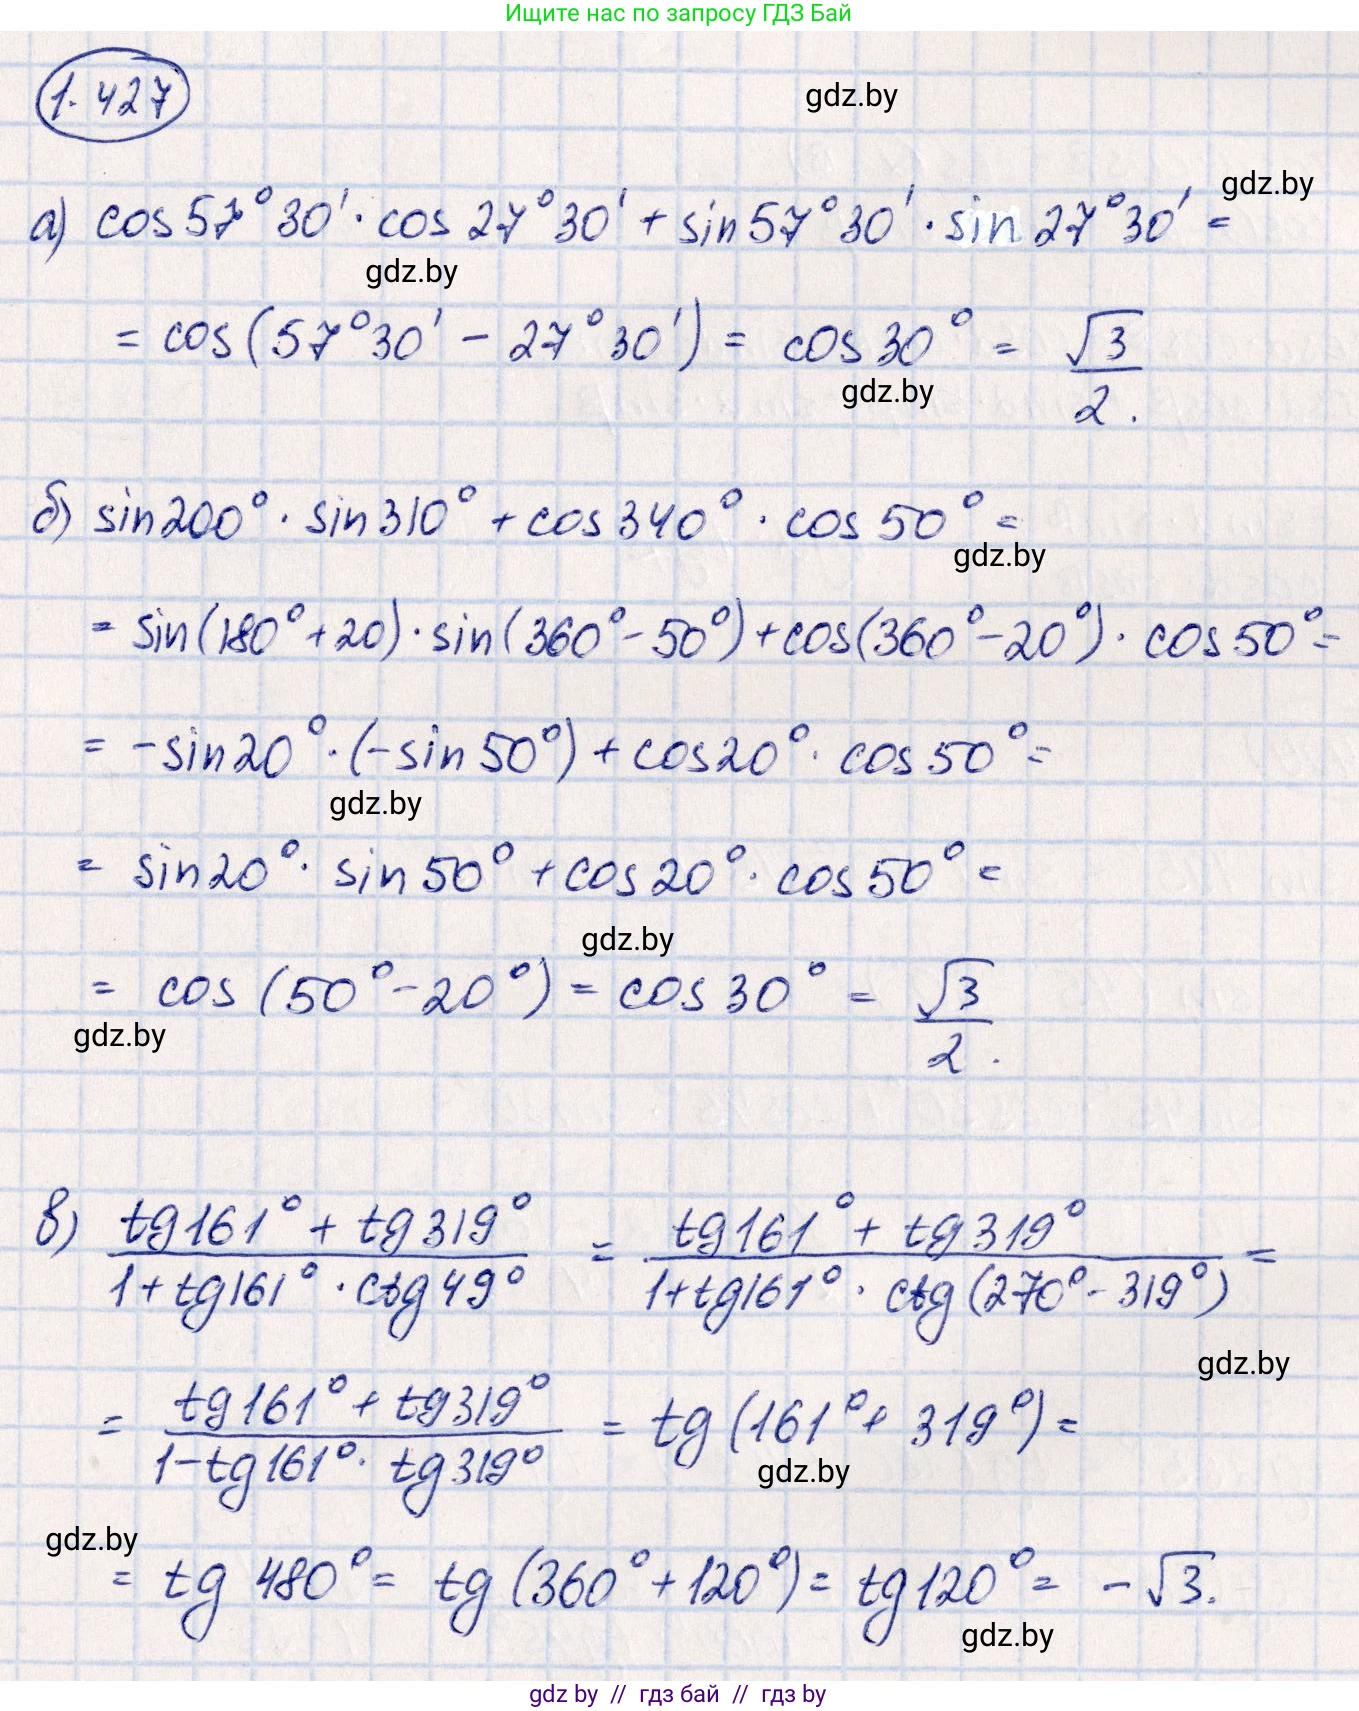 Ищите нас по запросу ГДЗ Бай
1.427
gdz.by
gdz.by
а) cos57°30' · cos 27°30' + sin57°30' · sin 27°30' =
gdz.by
= cos(57°30' - 27°30') = cos30° = √3/2.
gdz.by
б) sin200° · sin310° + cos340° · cos50° =
gdz.by
= sin(180°+20) · sin(360°-50°) + cos(360°-20°) · cos50° =
= -sin20° · (-sin50°) + cos20° · cos50° =
gdz.by
= sin20° · sin50° + cos20° · cos50° =
gdz.by
= cos(50°-20°) = cos30° = √3/2.
gdz.by
в) (tg161° + tg319°)/(1+tg161° · ctg49°) = (tg161° + tg319°)/(1+tg161° · ctg(270°-319°)) =
gdz.by
= (tg161° + tg319°)/(1-tg161° · tg319°) = tg(161° + 319°) =
gdz.by
gdz.by
= tg 480° = tg(360° + 120°) = tg120° = -√3.
gdz.by
gdz by // гдз бай // гдз by